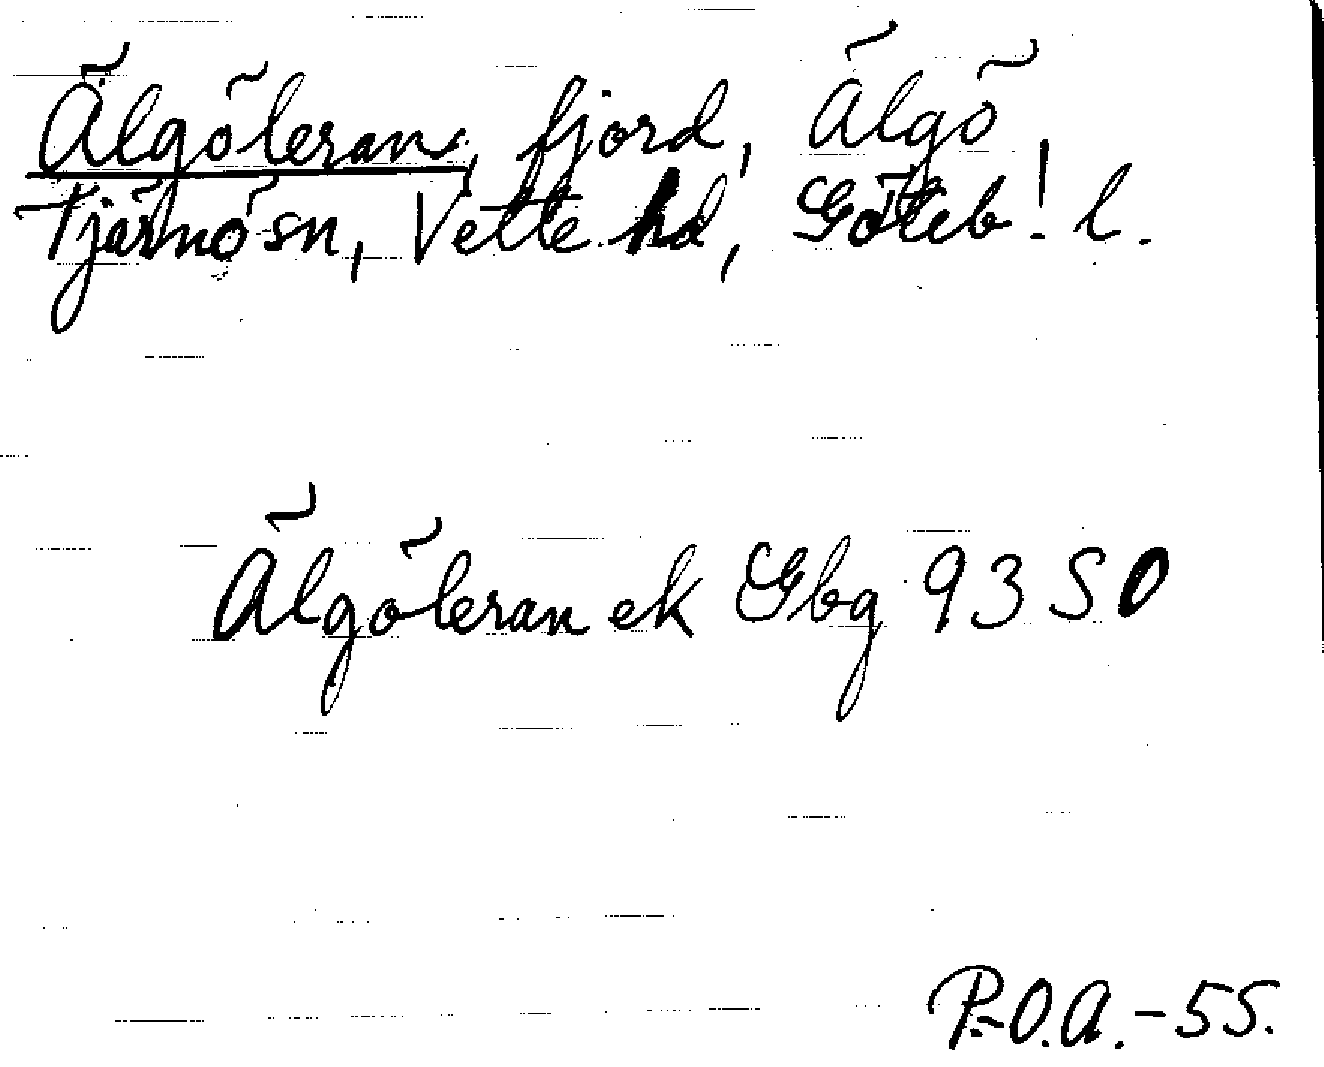 Älgöleran, fjord, Älgö,
Tjärnö sn, Vette hd, Göteb. l.
Älgöleran ek Gbg 93 SO
P.-O.A.-55.